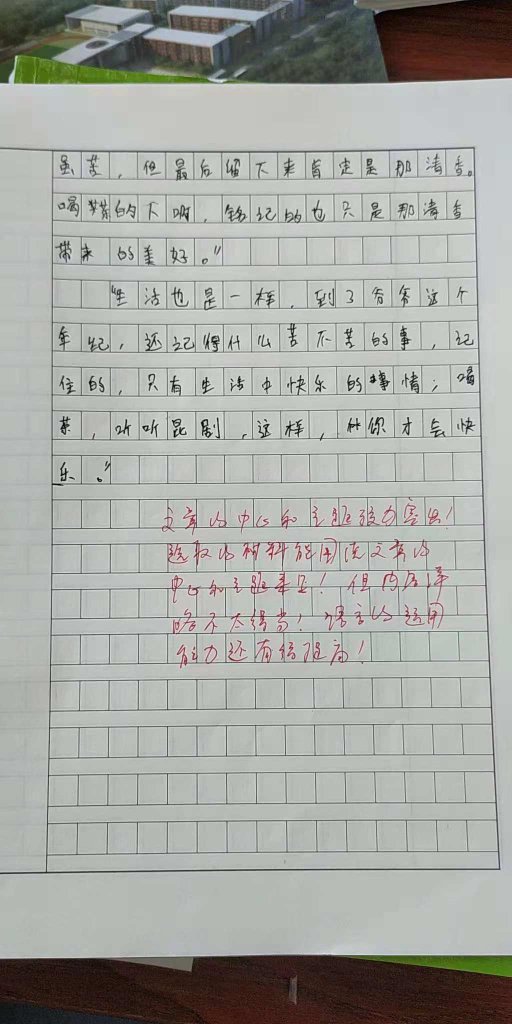 虽苦，但最后留下来肯定是那清香。
喝茶的下啊，铭记的也只是那清香
带来的美好。”
“生活也是一样，到了爷爷这个
年纪，还记得什么苦不苦的事，记
住的，只有生活中快乐的事情；喝
茶，听听昆剧，这样，你才会快
乐。”
文章的中心和主题较为突出！
选取的材料能围绕文章的
中心和主题来写！但内容详
略不太得当！语言的运用
能力还有待提高！